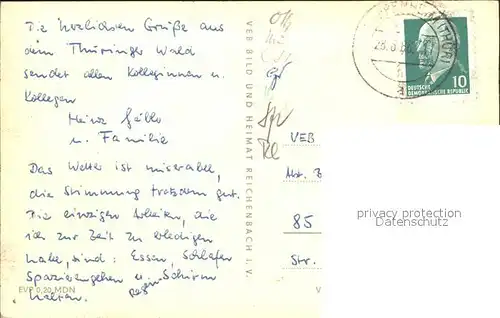 Die herzlichsten Grüße aus
dem Thüringer Wald
sendet allen Kolleginnen u.
Kollegen
Heinz
u. Familie
Das Wetter ist miserabel,
die Stimmung trotzdem gut.
Die einzigen Arbeiten, die
ich zur Zeit zu erledigen
habe, sind: Essen, Schlafen
Spazierengehen u. Schirm
Regen
halten.
EVP 0,20 MDN
VEB BILD UND HEIMAT REICHENBACH I. V.
DEUTSCHE
DEMOKRATISCHE REPUBLIK
10
VEB
Abt.
85
Str.
V
privacy protection
Datenschutz